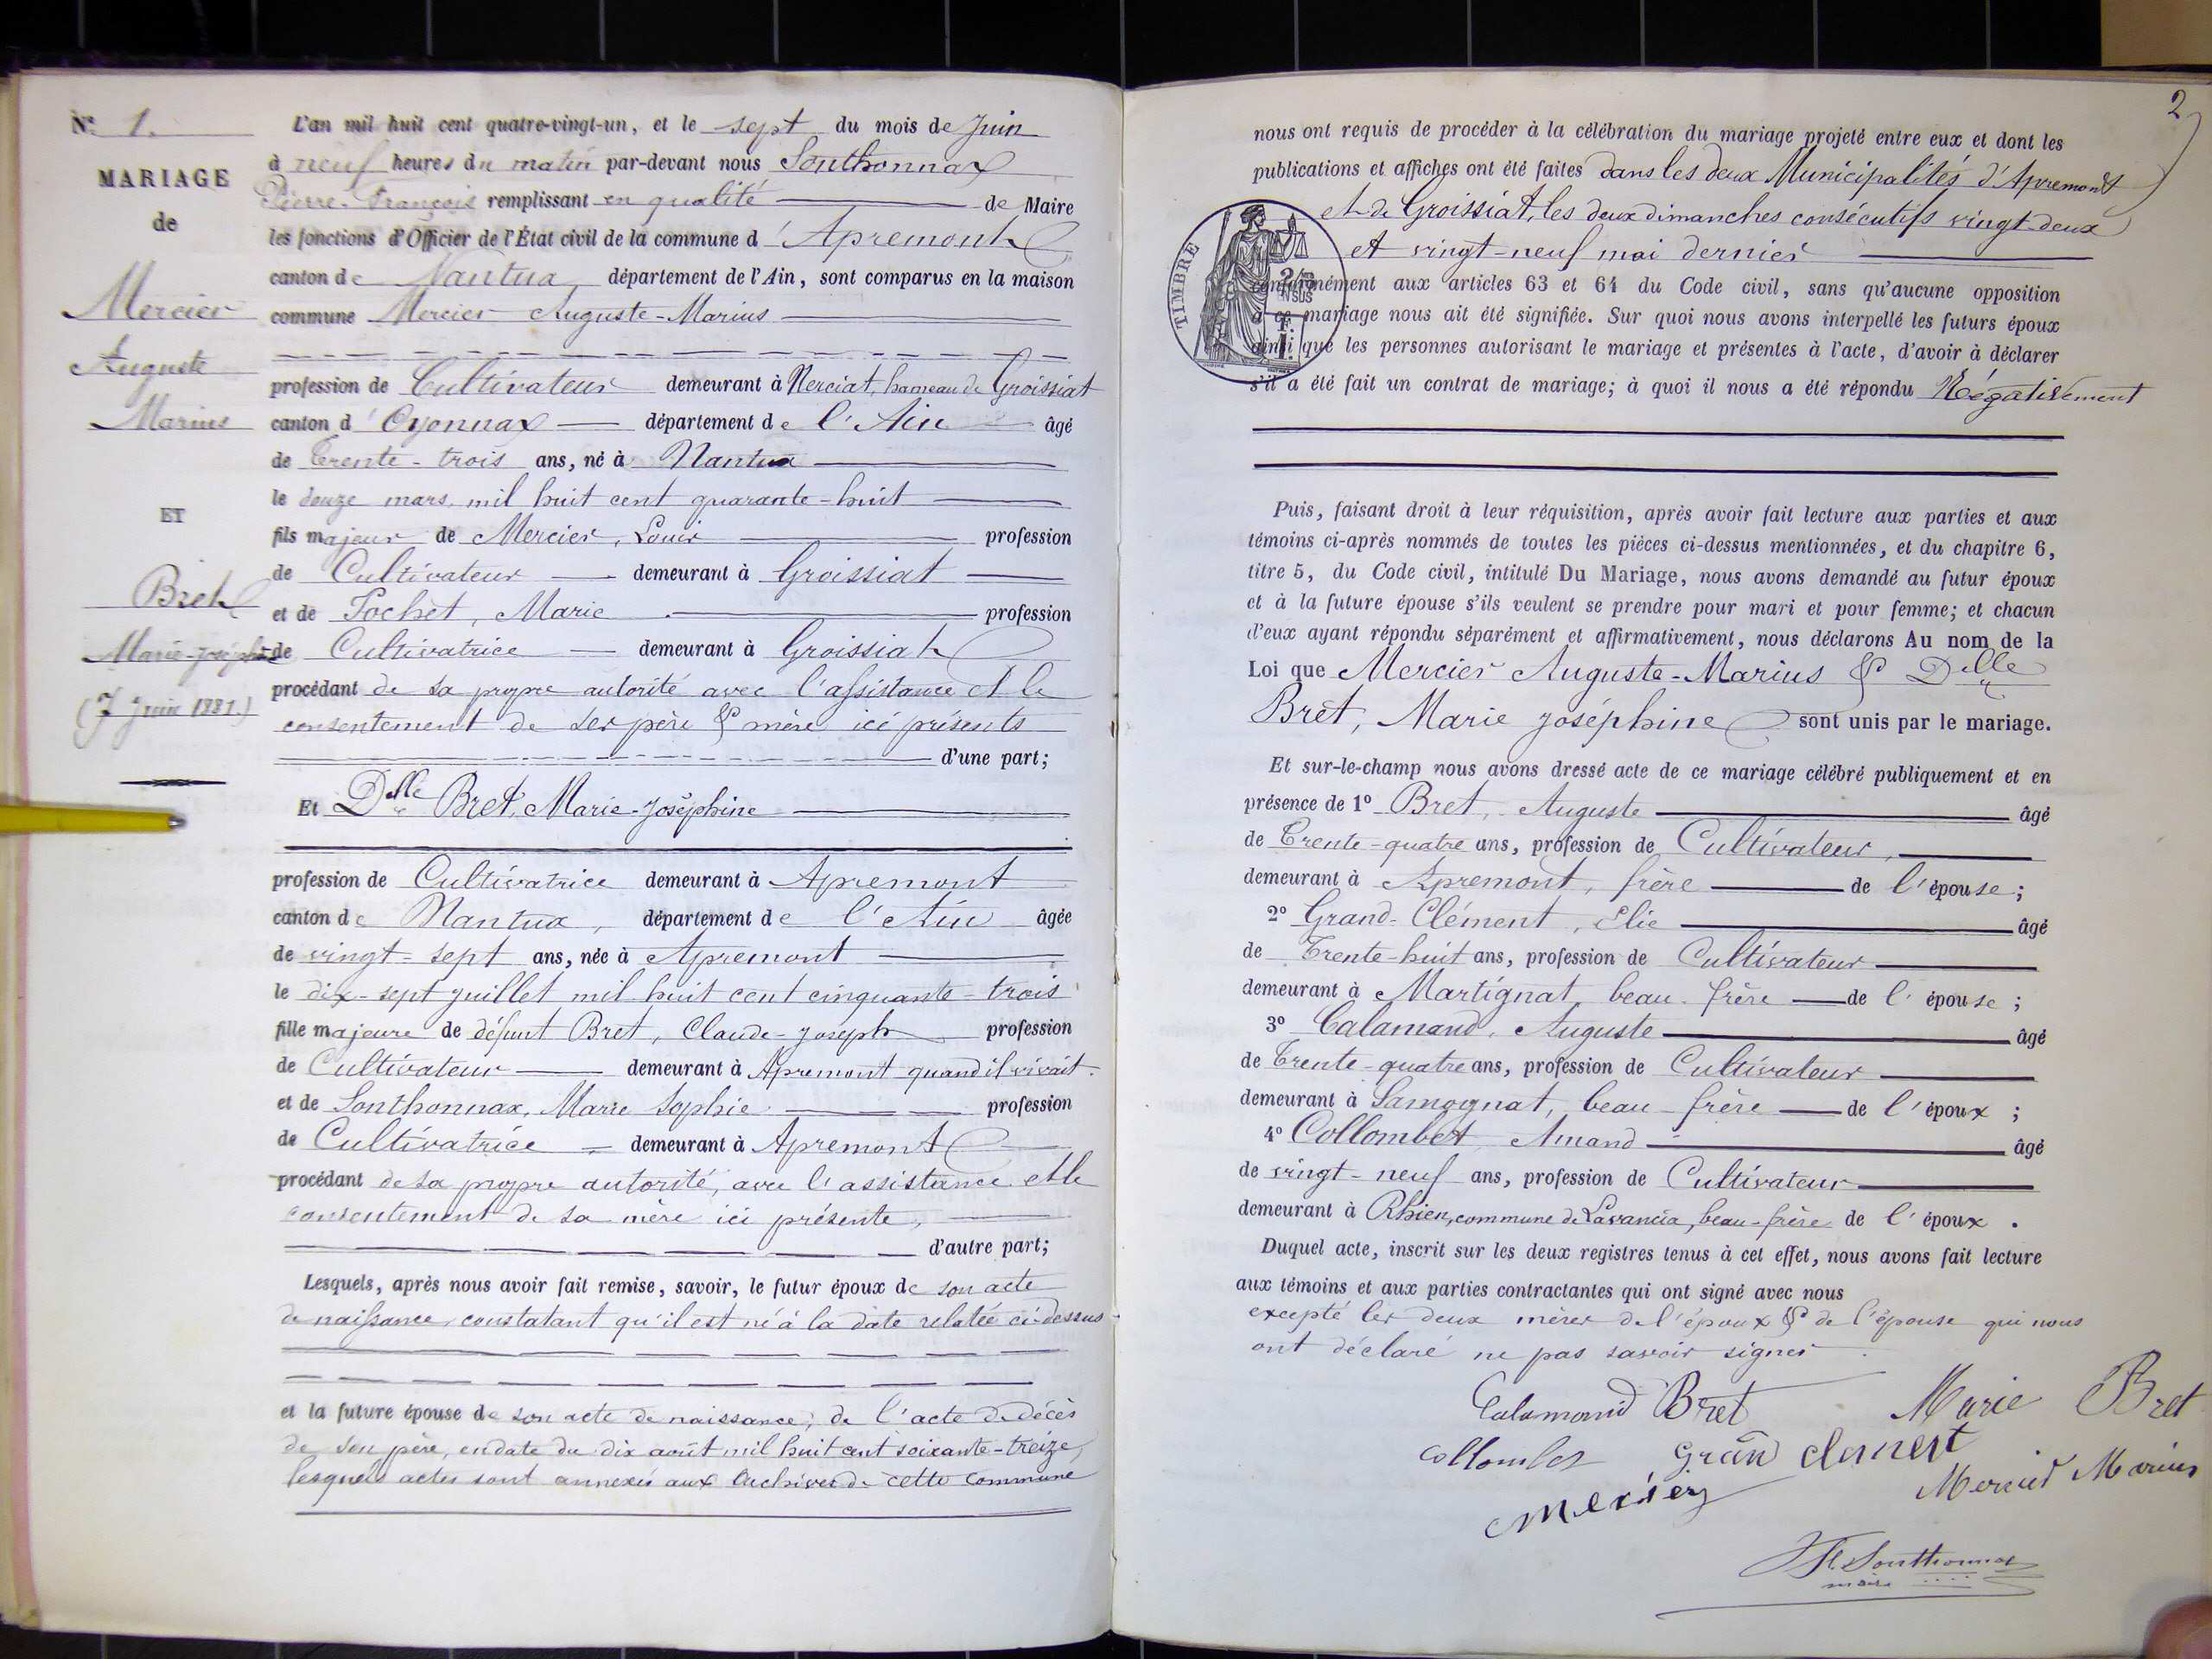 N° 1.
MARIAGE
de
Mercier
Auguste
Marius
ET
Bret
Marie-Joséphine
(7 Juin 1881.)
L'an mil huit cent quatre-vingt-un, et le sept du mois de Juin
à neuf heures du matin par-devant nous Sonthonnax
Pierre-François remplissant en qualité de Maire
les fonctions d'Officier de l'État civil de la commune d'Apremont
canton de Nantua, département de l'Ain, sont comparus en la maison
commune Mercier Auguste-Marius
profession de Cultivateur demeurant à Nerciat, hameau de Groissiat
canton d'Oyonnax département de l'Ain âgé
de Trente-trois ans, né à Nantua
le douze mars mil huit cent quarante-huit
fils majeur de Mercier, Louis profession
de Cultivateur demeurant à Groissiat
et de Pochet, Marie profession
de Cultivatrice demeurant à Groissiat
procédant de sa propre autorité avec l'assistance et le
consentement de ses père & mère ici présents
d'une part;
Et Delle Bret, Marie-Joséphine
profession de Cultivatrice demeurant à Apremont
canton de Nantua, département de l'Ain âgée
de vingt-sept ans, née à Apremont
le dix-sept juillet mil huit cent cinquante-trois
fille majeure de défunt Bret, Claude-Joseph profession
de Cultivateur demeurant à Apremont quand il vivait.
et de Sonthonnax, Marie Sophie profession
de Cultivatrice demeurant à Apremont
procédant de sa propre autorité, avec l'assistance et le
consentement de sa mère ici présente,
d'autre part;
Lesquels, après nous avoir fait remise, savoir, le futur époux de son acte
de naissance, constatant qu'il est né à la date relatée ci-dessus
et la future épouse de son acte de naissance; de l'acte de décès
de son père, en date du dix août mil huit cent soixante-treize,
lesquels actes sont annexés aux Archives de cette commune
2
nous ont requis de procéder à la célébration du mariage projeté entre eux et dont les
publications et affiches ont été faites dans les deux Municipalités d'Apremont
et de Groissiat, les deux dimanches consécutifs vingt-deux
et vingt-neuf mai dernier
TIMBRE
conformément aux articles 63 et 64 du Code civil, sans qu'aucune opposition
à ce mariage nous ait été signifiée. Sur quoi nous avons interpellé les futurs époux
ainsi que les personnes autorisant le mariage et présentes à l'acte, d'avoir à déclarer
s'il a été fait un contrat de mariage; à quoi il nous a été répondu Négativement
Puis, faisant droit à leur réquisition, après avoir fait lecture aux parties et aux
témoins ci-après nommés de toutes les pièces ci-dessus mentionnées, et du chapitre 6,
titre 5, du Code civil, intitulé Du Mariage, nous avons demandé au futur époux
et à la future épouse s'ils veulent se prendre pour mari et pour femme; et chacun
d'eux ayant répondu séparément et affirmativement, nous déclarons Au nom de la
Loi que Mercier Auguste-Marius & Delle
Bret, Marie Joséphine sont unis par le mariage.
Et sur-le-champ nous avons dressé acte de ce mariage célébré publiquement et en
présence de 1° Bret, Auguste âgé
de Trente-quatre ans, profession de Cultivateur,
demeurant à Apremont, frère de l'épouse;
2° Grand-Clément, Elie âgé
de Trente-huit ans, profession de Cultivateur
demeurant à Martignat, beau-frère de l'épouse;
3° Calamand, Auguste âgé
de Trente-quatre ans, profession de Cultivateur
demeurant à Samognat, beau-frère de l'époux;
4° Collombet Amand âgé
de vingt-neuf ans, profession de Cultivateur
demeurant à Rhien, commune de Lavancia, beau-frère de l'époux.
Duquel acte, inscrit sur les deux registres tenus à cet effet, nous avons fait lecture
aux témoins et aux parties contractantes qui ont signé avec nous
excepté les deux mères de l'époux & de l'épouse qui nous
ont déclaré ne pas savoir signer.
Calamand Bret Marie Bret
Collombet Gran Clement
Mercier Mercier Marius
Sonthonnax
maire